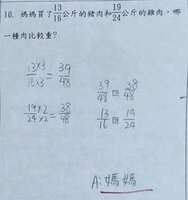 10. 媽媽買了13/16公斤的豬肉和19/24公斤的雞肉，哪
一種肉比較重？
13×3/16×3 = 39/48
19×2/24×2 = 38/48
39/48 > 38/48
13/16 > 19/24
A: 媽媽